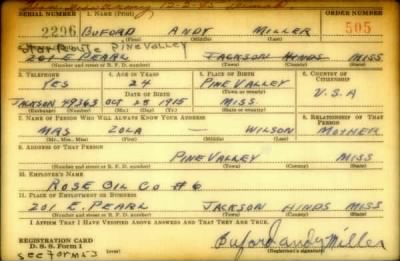 SERIAL NUMBER 1. NAME (Print) ORDER NUMBER
2296 BUFORD ANDY MILLER 505
(First) (Middle) (Last)
Star Route PINE VALLEY
201 E PEARL JACKSON HINDS MISS
(Number and street or R. F. D. number) (Town) (County) (State)
3. TELEPHONE 4. AGE IN YEARS 5. PLACE OF BIRTH 6. COUNTRY OF CITIZENSHIP
YES 24 PINE VALLEY
DATE OF BIRTH U.S.A
JACKSON OCT 25 1915 MISS.
(Exchange) (Number) (Mo.) (Day) (Yr.) (State or country)
7. NAME OF PERSON WHO WILL ALWAYS KNOW YOUR ADDRESS 8. RELATIONSHIP OF THAT PERSON
MRS ZOLA — WILSON MOTHER
(Mr., Mrs., Miss) (First) (Middle) (Last)
9. ADDRESS OF THAT PERSON
PINE VALLEY MISS
(Number and street or R. F. D. number) (Town) (County) (State)
10. EMPLOYER'S NAME
ROSE OIL CO # 6
11. PLACE OF EMPLOYMENT OR BUSINESS
201 E. PEARL JACKSON HINDS MISS
(Number and street or R. F. D. number) (Town) (County) (State)
I AFFIRM THAT I HAVE VERIFIED ABOVE ANSWERS AND THAT THEY ARE TRUE.
REGISTRATION CARD
D. S. S. Form 1 Buford andy Miller
(Registrant's signature)
see Form 53